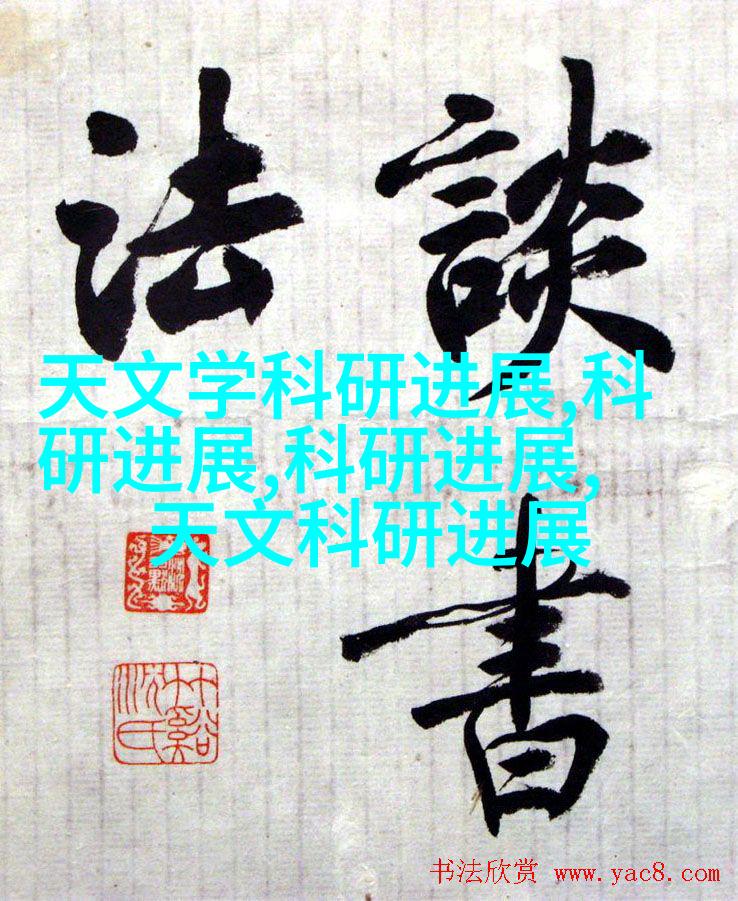 談書
法
天文学科研进展,科
研进展,科研进展,
天文科研进展
书法欣赏 www.yac8.com